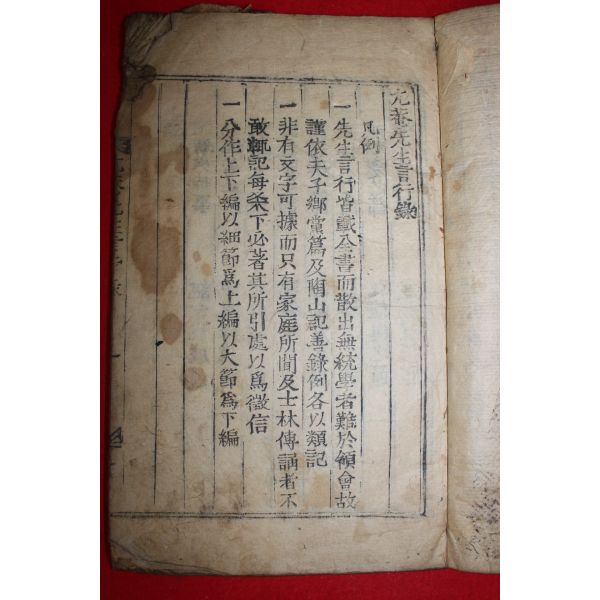 尤菴先生言行錄
凡例
一先生言行皆載全書而散出無統學者難於領會故
謹依夫子鄕黨篇及陶山記善錄例各以類記
一非有文字可據而只有家庭所聞及士林傳誦者不
敢輒記每条下必著其所引處以爲徵信
一分作上下編以細節爲上編以大節爲下編